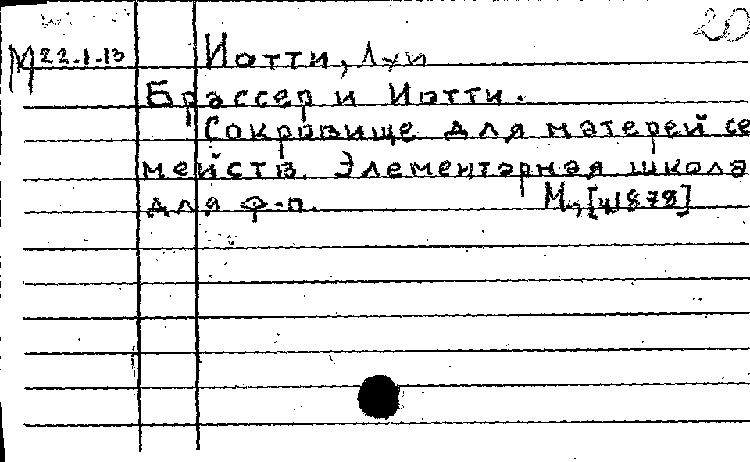 20
М 22-1-13 Иотти, Луи
Брассер и Иотти.
Сокровище для матерей се
мейств. Элементарная школа
для ф-п. М., [ц1878]